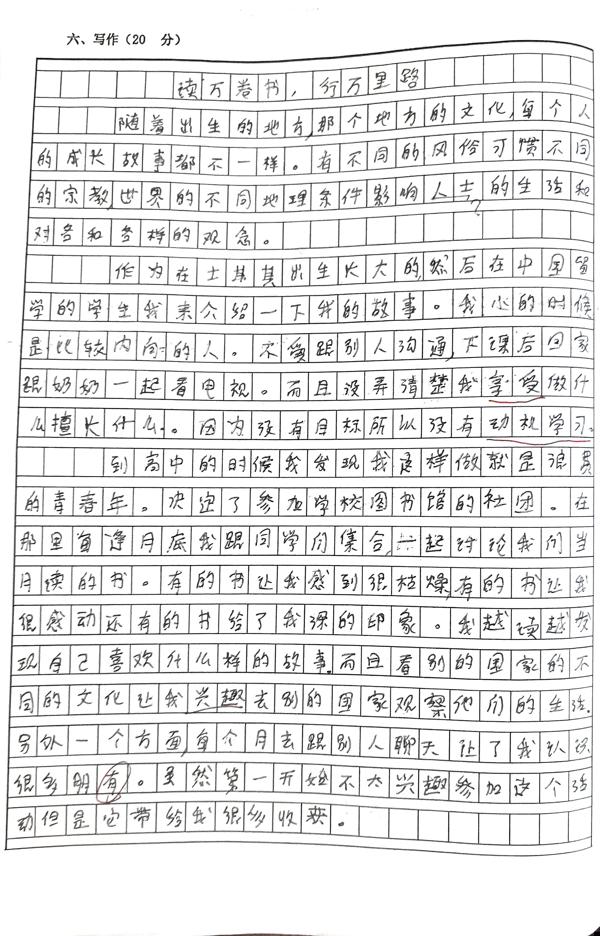 六、写作（20 分）
读万卷书，行万里路
随着出生的地方,那个地方的文化,每个人
的成长故事都不一样。有不同的风俗习惯不同
的宗教,世界的不同地理条件影响人士的生活和
?
对各和各样的观念。
作为在土 出生长大的,然后在中国留
学的学生我来介绍一下我的故事。我心的时候
是比较内向的人。不爱跟别人沟通,下课后回家
跟奶奶一起看电视。而且没弄清楚我享受做什
么擅长什么。因为没有目标所以没有动机学习。
到高中的时候我发现我这样做就是浪费
的青春年。决定了参加学校图书馆的社团。在
那里每逢月底我跟同学们集合,一起讨论我们当
月读的书。有的书让我感到很枯燥,有的书让我
很感动还有的书给了我深的印象。我越读越发
现自己喜欢什么样的故事.而且看别的国家的不
同的文化让我兴趣去别的国家观察他们的生活.
另外一个方面,每个月去跟别人聊天让了我认识
很多朋有。虽然第一开始不太兴趣参加这个活
动但是它带给我很多收获。